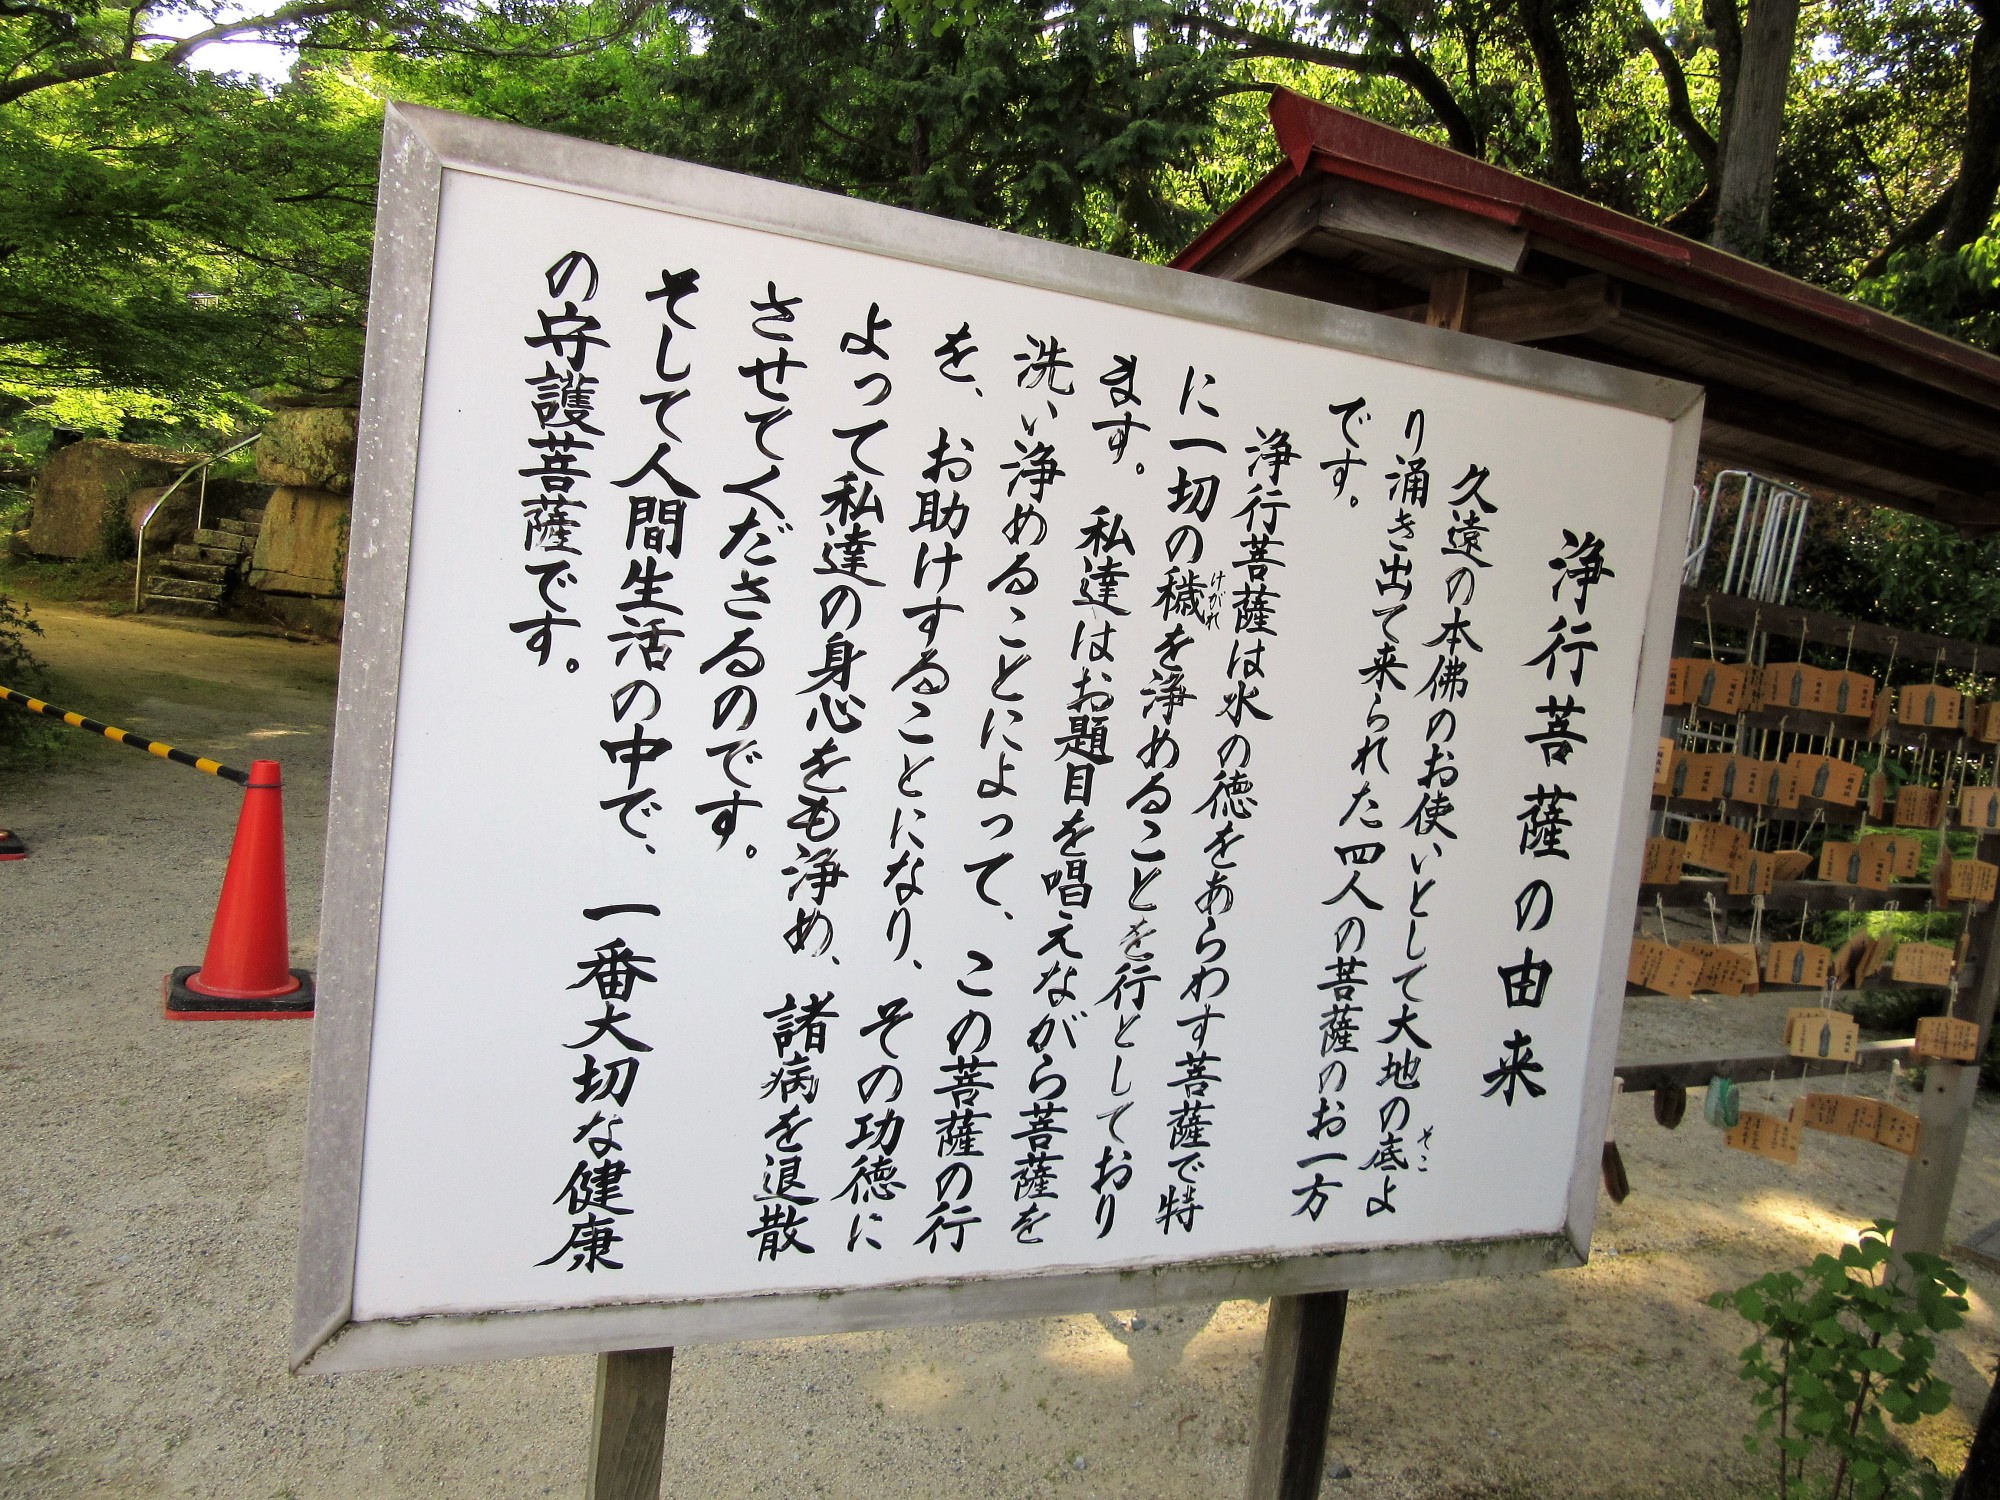 浄行菩薩の由来
久遠の本佛のお使いとして大地の底よ
そこ
り涌き出て来られた四人の菩薩のお一方
です。
浄行菩薩は水の徳をあらわす菩薩で特
に一切の穢を浄めることを行としており
けがれ
ます。私達はお題目を唱えながら菩薩を
洗い浄めることによって、この菩薩の行
を、お助けすることになり、その功徳に
よって私達の身心をも浄め、諸病を退散
させてくださるのです。
そして人間生活の中で、一番大切な健康
の守護菩薩です。